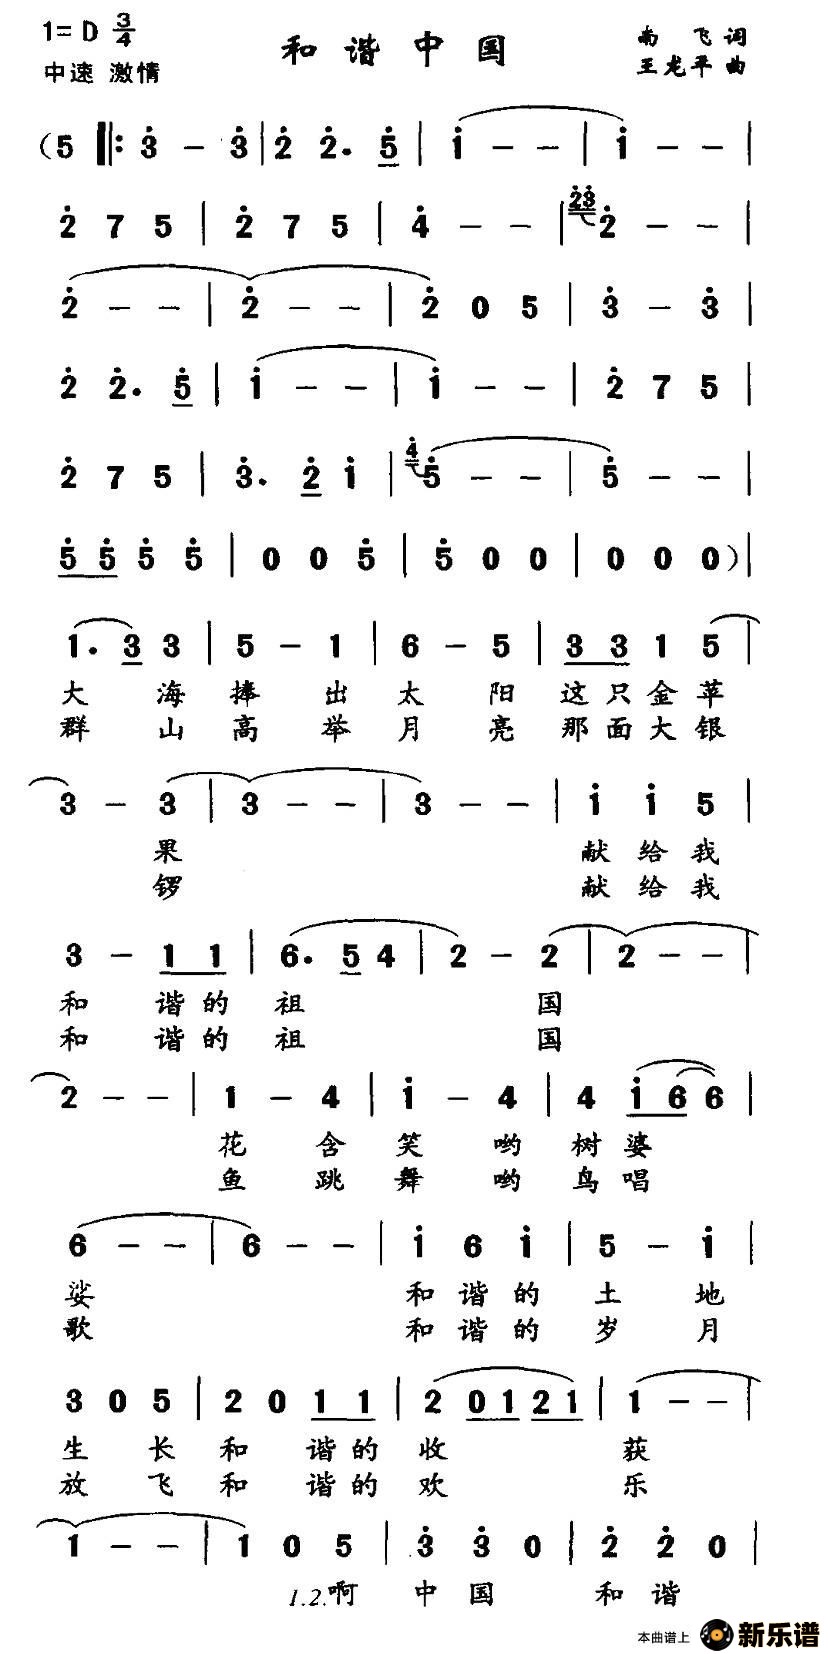 1= D 3/4
和谐中国
南 飞 词
中速 激情
王龙平 曲
(5 ‖: 3̇ – 3̇ | 2̇ 2̇. 5̇ | i – – | i – – |
2̇ 7 5 | 2̇ 7 5 | 4̇ – – | 2̇3̇ 2̇ – – |
2̇ – – | 2̇ – – | 2̇ 0 5 | 3̇ – 3̇ |
2̇ 2̇. 5̇ | i – – | i – – | 2̇ 7 5 |
2̇ 7 5 | 3̇. 2̇ i | 4̇ 5̇ – – | 5̇ – – |
5̇ 5̇ 5̇ 5̇ | 0 0 5̇ | 5̇ 0 0 | 0 0 0 ) |
1. 3 3 | 5 – 1 | 6 – 5 | 3 3 1 5 |
大 海 捧 出 太 阳 这 只 金 苹
群 山 高 举 月 亮 那 面 大 银
3 – 3 | 3 – – | 3 – – | i i 5 |
果 献 给 我
锣 献 给 我
3 – 1 1 | 6. 5 4 | 2 – 2 | 2 – – |
和 谐 的 祖 国
和 谐 的 祖 国
2 – – | 1 – 4 | i – 4 | 4 i 6 6 |
花 含 笑 哟 树 婆
鱼 跳 舞 哟 鸟 唱
6 – – | 6 – – | i 6 i | 5 – i |
娑 和 谐 的 土 地
歌 和 谐 的 岁 月
3 0 5 | 2 0 1 1 | 2 0 1 2 1 | 1 – – |
生 长 和 谐 的 收 获
放 飞 和 谐 的 欢 乐
1 – – | 1 0 5 | 3̇ 3̇ 0 | 2̇ 2̇ 0 |
1.2.啊 中 国 和 谐
本曲谱上 新乐谱